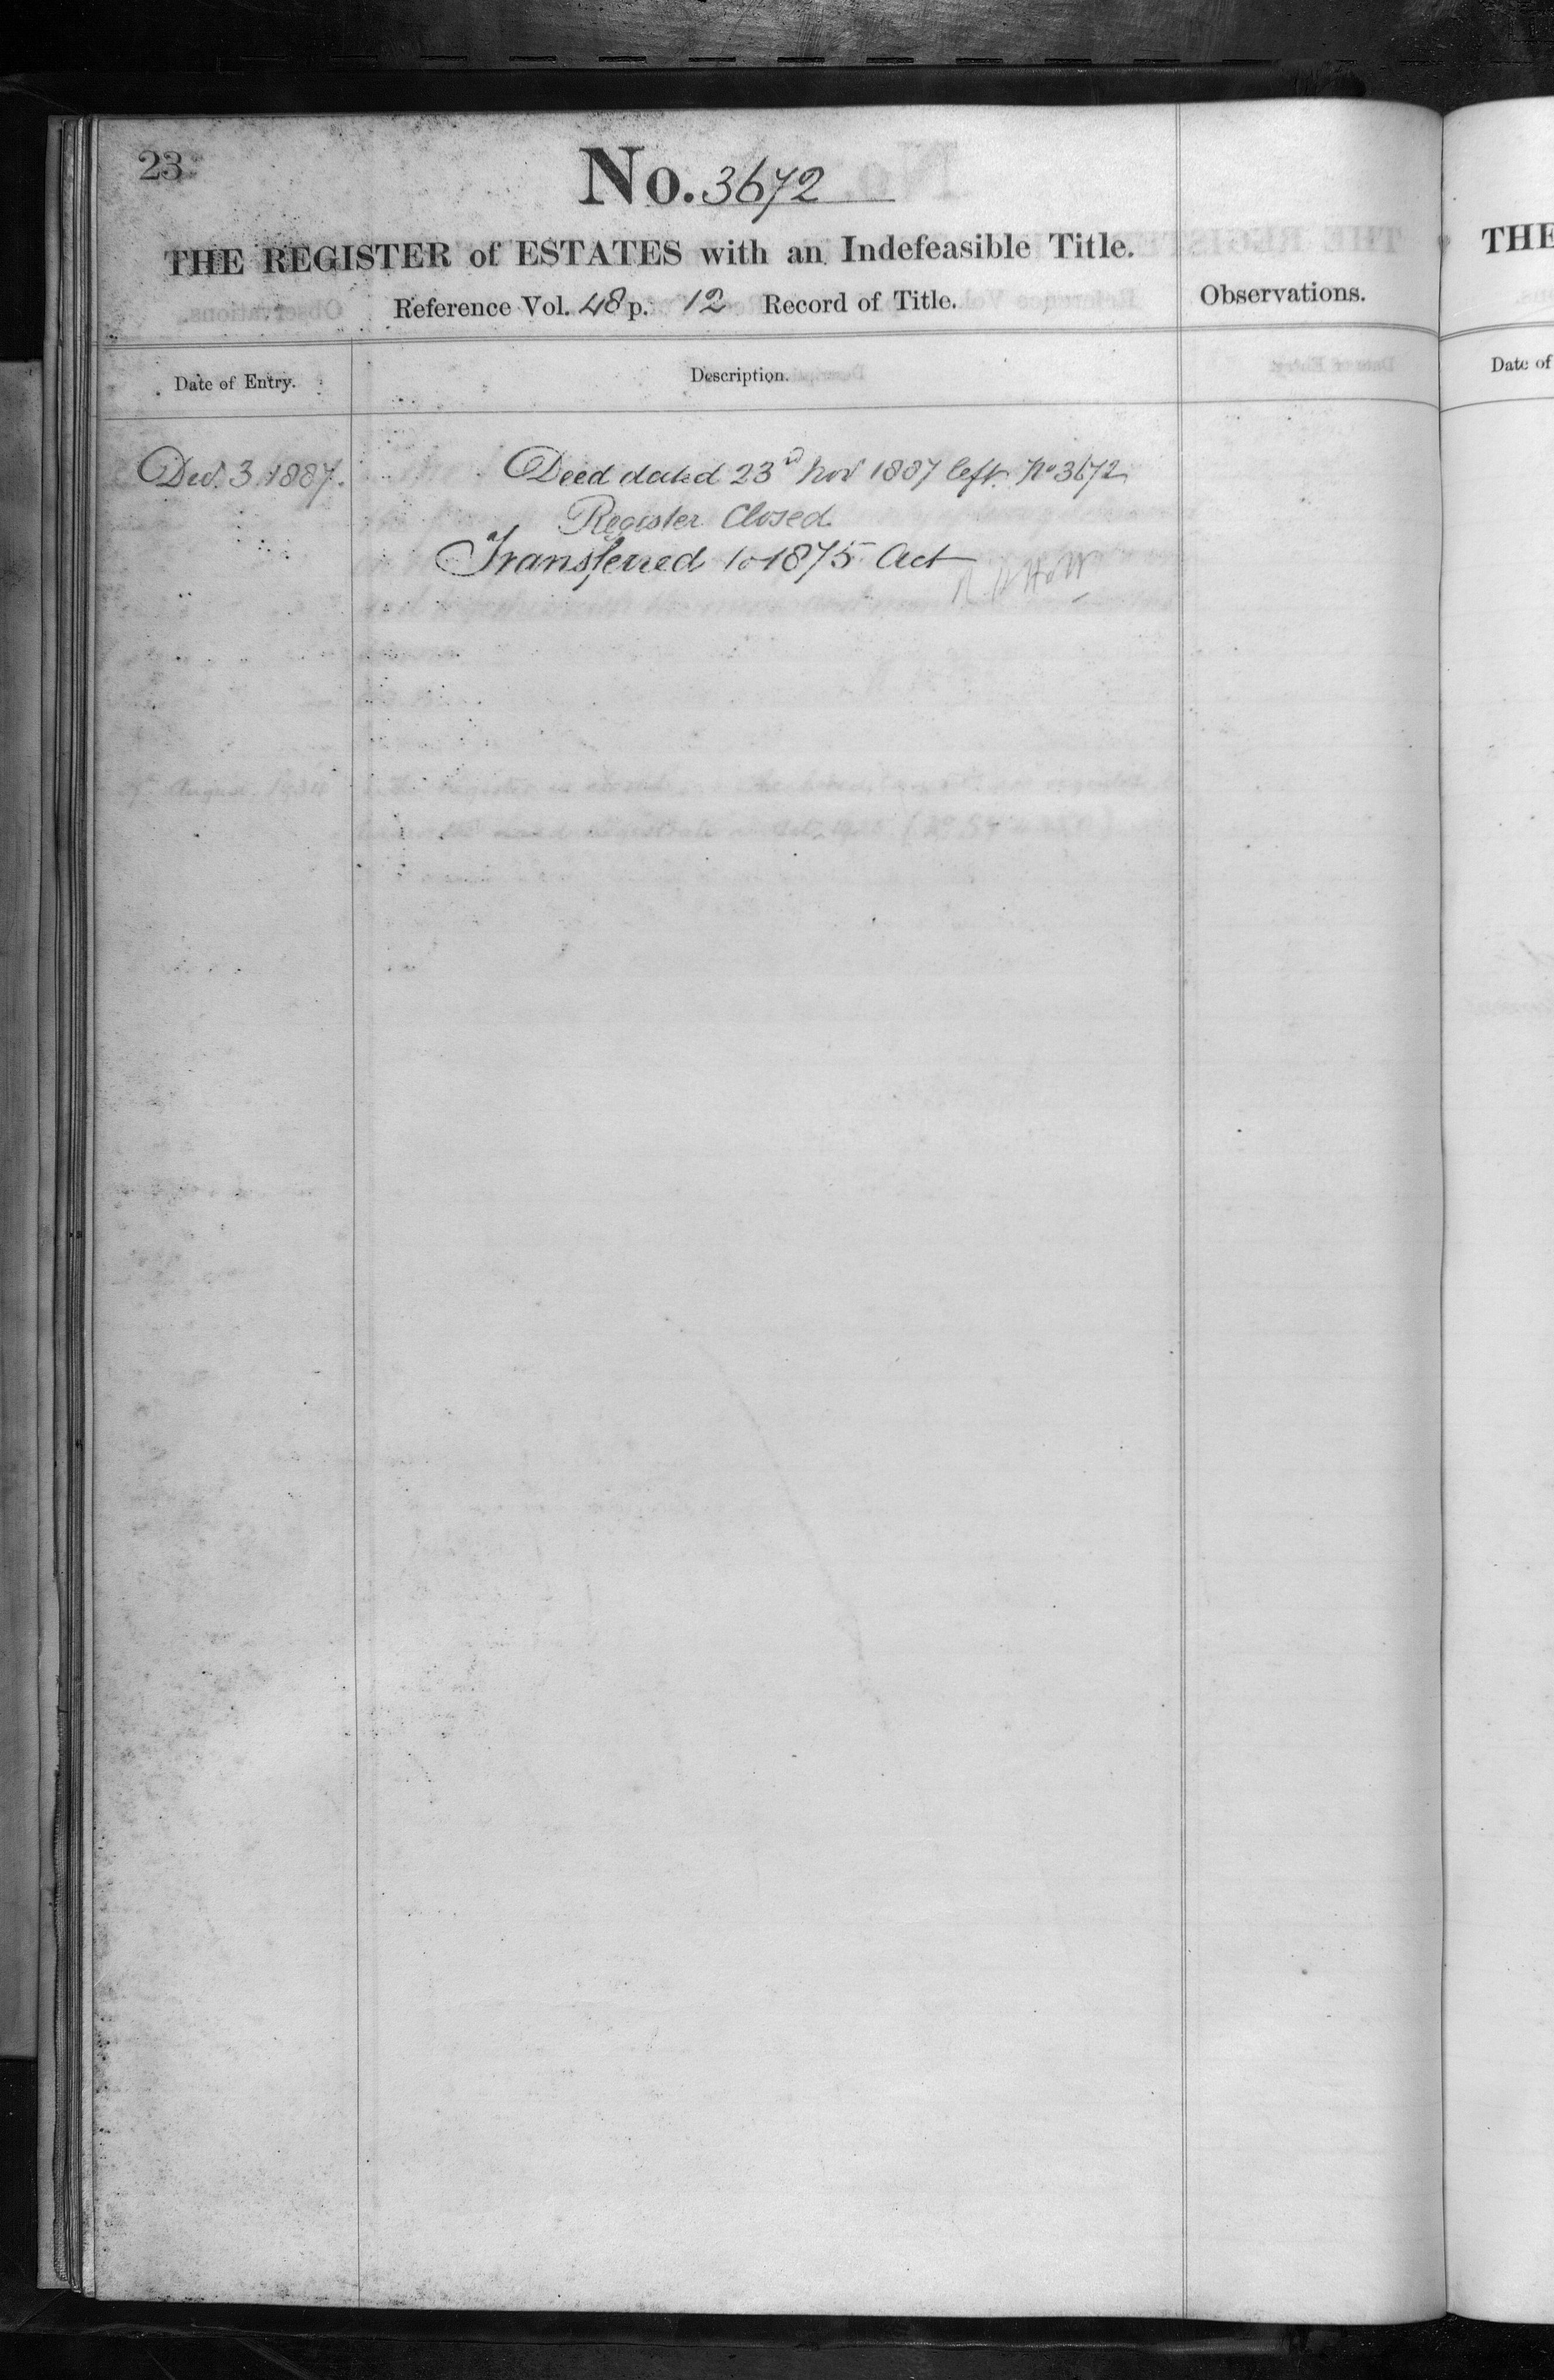 23
No. 3672
THE REGISTER of ESTATES with an Indefeasible Title.
Reference Vol. 48 p. 12 Record of Title.
Observations.
Date of Entry.
Description.
Dec. 3 1887.
Deed dated 23rd Nov 1887 left. No 3672
Register Closed.
Transferred to 1875 Act
THE
Date of